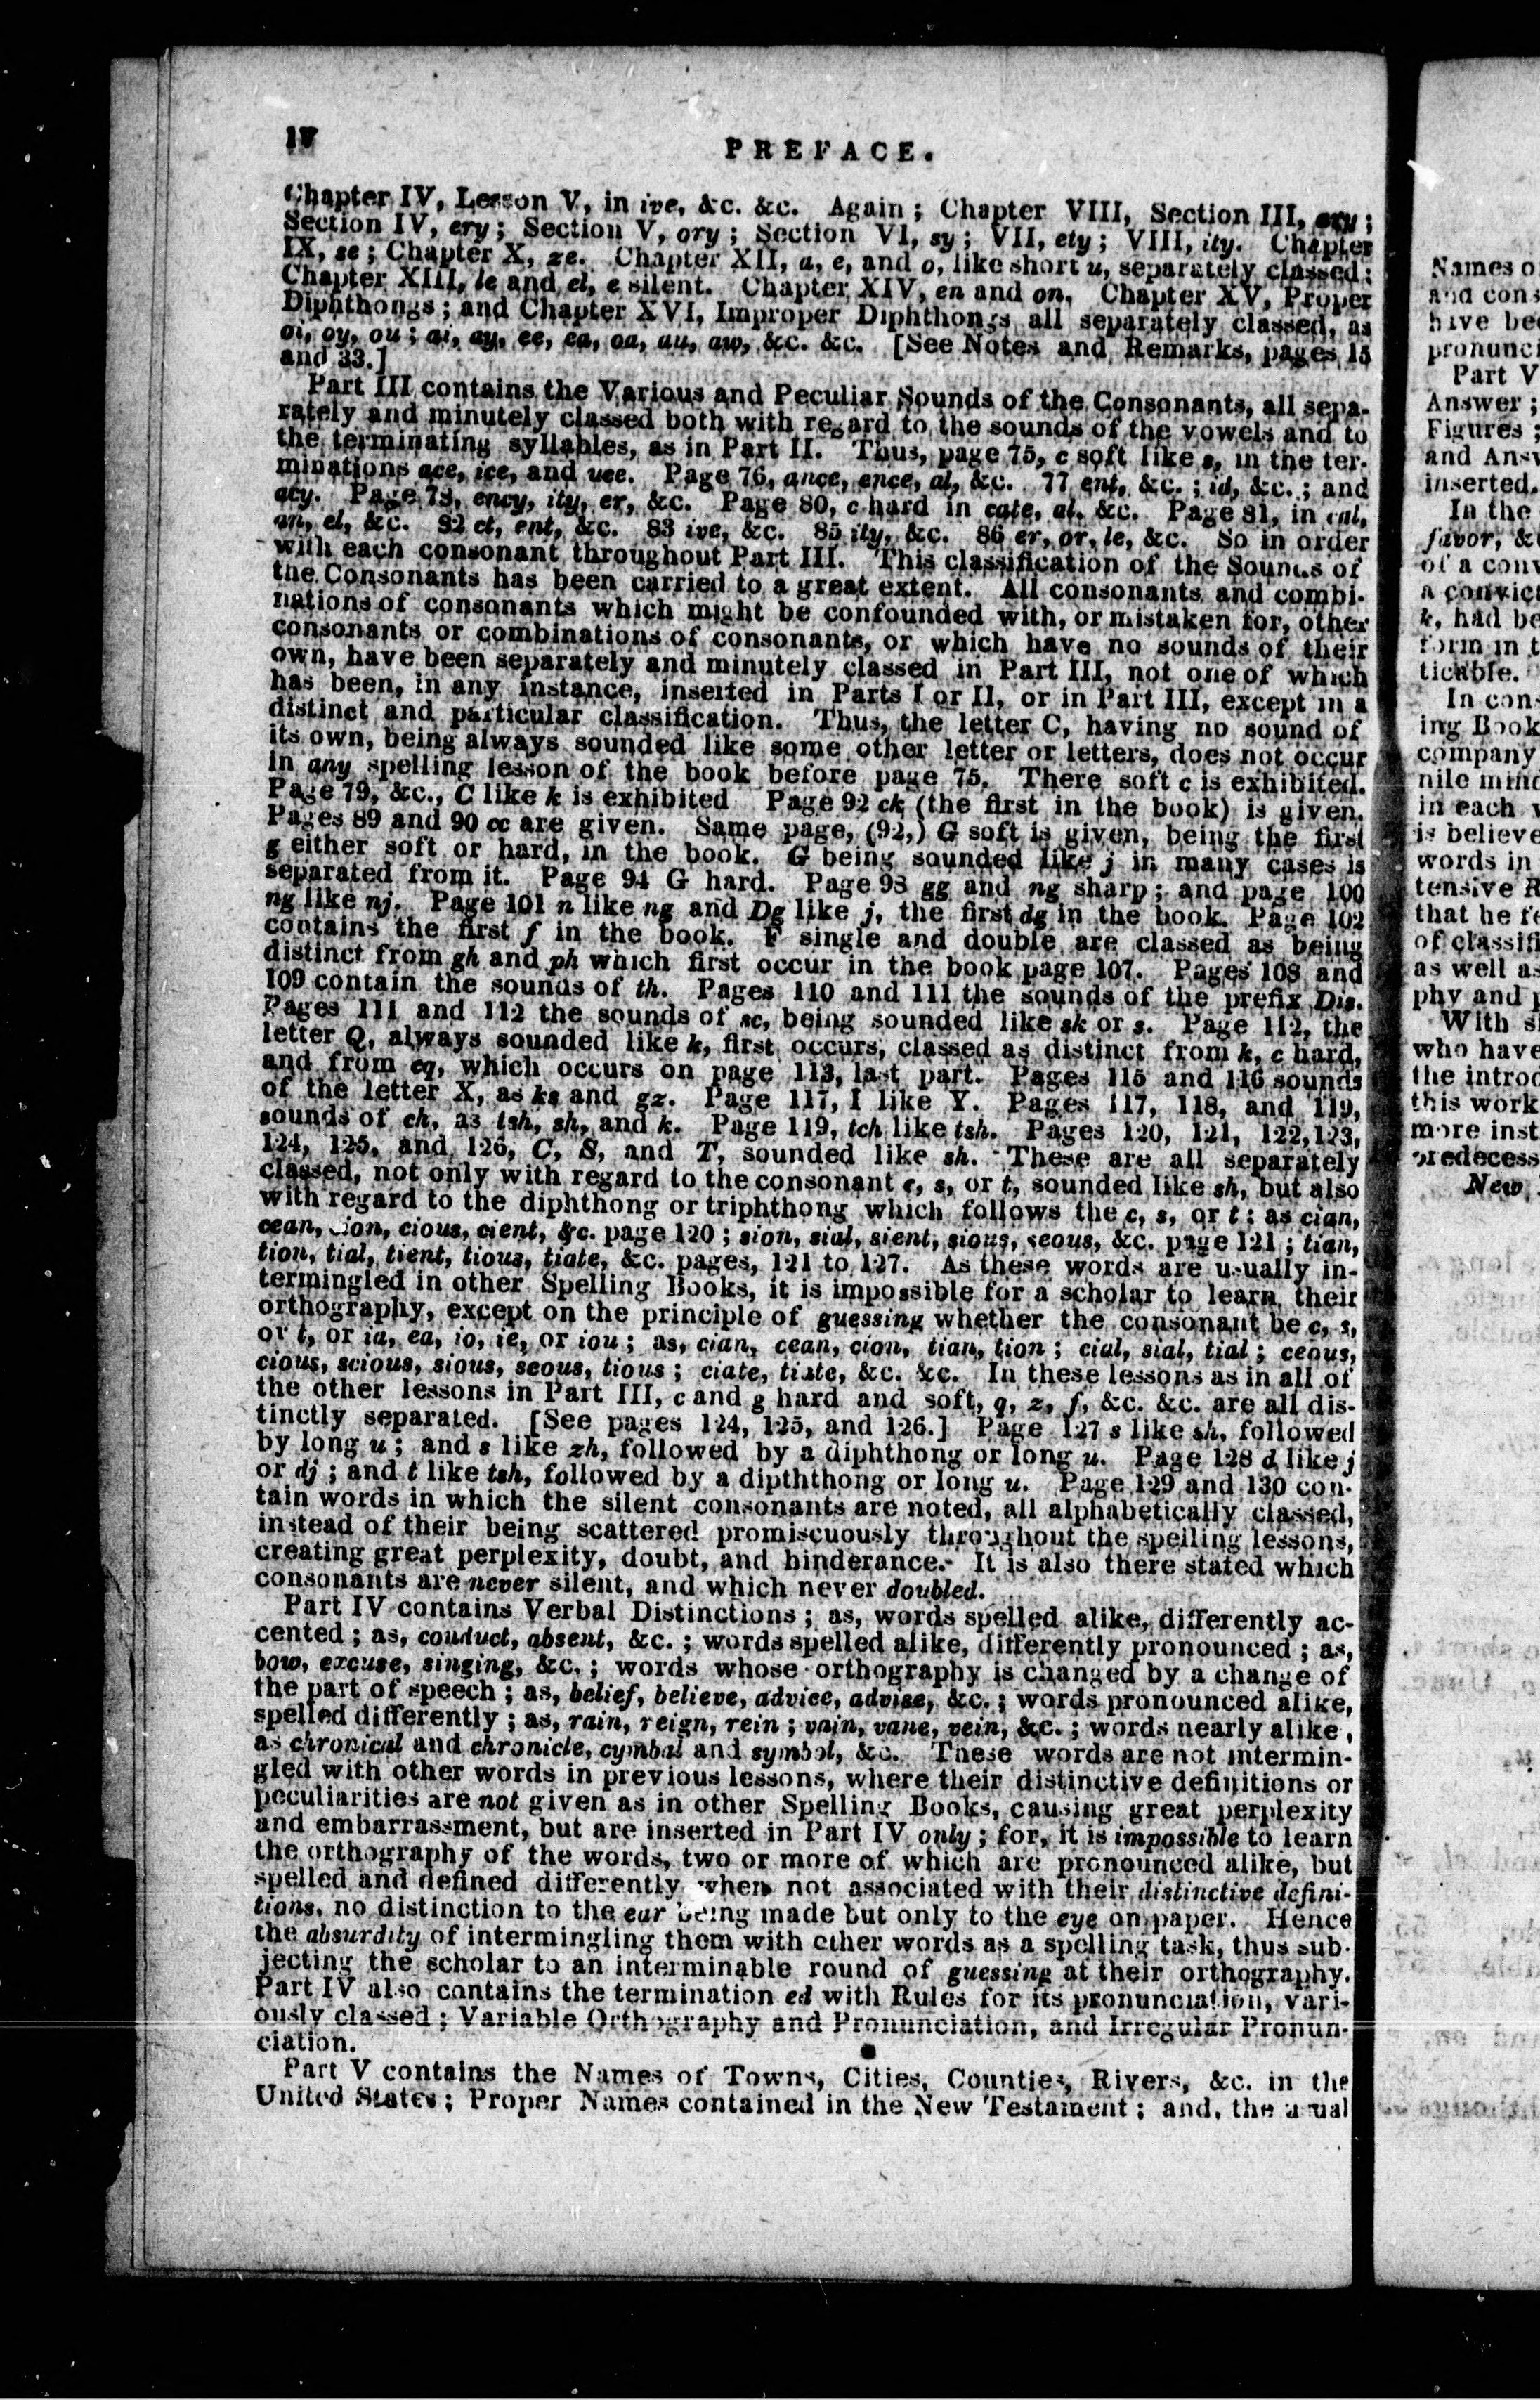 iv
PREFACE.
Chapter IV, Lesson V, in ive, &c. &c. Again; Chapter VIII, Section III, ary;
Section IV, ery; Section V, ory; Section VI, sy; VII, ety; VIII, ity. Chapter
IX, se; Chapter X, ze. Chapter XII, a, e, and o, like short u, separately classed;
Chapter XIII, le and el, e silent. Chapter XIV, en and on. Chapter XV, Proper
Diphthongs; and Chapter XVI, Improper Diphthongs all separately classed, as
oi, oy, ou; ai, ay, ee, ea, oa, au, aw, &c. &c. [See Notes and Remarks, pages 15
and 33.]
Part III contains the Various and Peculiar Sounds of the Consonants, all sepa-
rately and minutely classed both with regard to the sounds of the vowels and to
the terminating syllables, as in Part II. Thus, page 75, c soft like s, in the ter-
minations ace, ice, and uce. Page 76, ance, ence, al, &c. 77 ent, &c.; id, &c.; and
acy. Page 78, ency, ity, er, &c. Page 80, c hard in cate, al, &c. Page 81, in cal,
an, el, &c. 82 ct, ent, &c. 83 ive, &c. 85 ity, &c. 86 er, or, le, &c. So in order
with each consonant throughout Part III. This classification of the Sounds of
the Consonants has been carried to a great extent. All consonants and combi-
nations of consonants which might be confounded with, or mistaken for, other
consonants or combinations of consonants, or which have no sounds of their
own, have been separately and minutely classed in Part III, not one of which
has been, in any instance, inserted in Parts I or II, or in Part III, except in a
distinct and particular classification. Thus, the letter C, having no sound of
its own, being always sounded like some other letter or letters, does not occur
in any spelling lesson of the book before page 75. There soft c is exhibited.
Page 79, &c., C like k is exhibited Page 92 ck (the first in the book) is given.
Pages 89 and 90 cc are given. Same page, (92,) G soft is given, being the first
g either soft or hard, in the book. G being sounded like j in many cases is
separated from it. Page 94 G hard. Page 98 gg and ng sharp; and page 100
ng like nj. Page 101 n like ng and Dg like j, the first dg in the book. Page 102
contains the first f in the book. F single and double are classed as being
distinct from gh and ph which first occur in the book page 107. Pages 108 and
109 contain the sounds of th. Pages 110 and 111 the sounds of the prefix Dis.
Pages 111 and 112 the sounds of sc, being sounded like sk or s. Page 112, the
letter Q, always sounded like k, first occurs, classed as distinct from k, c hard,
and from cq, which occurs on page 113, last part. Pages 115 and 116 sounds
of the letter X, as ks and gz. Page 117, I like Y. Pages 117, 118, and 119,
sounds of ch, as tsh, sh, and k. Page 119, tch like tsh. Pages 120, 121, 122, 123,
124, 125, and 126, C, S, and T, sounded like sh. These are all separately
classed, not only with regard to the consonant c, s, or t, sounded like sh, but also
with regard to the diphthong or triphthong which follows the c, s, or t: as cian,
cean, cion, cious, cient, &c. page 120; sion, sial, sient, sious, seous, &c. page 121; tian,
tion, tial, tient, tious, tiate, &c. pages, 121 to 127. As these words are usually in-
termingled in other Spelling Books, it is impossible for a scholar to learn their
orthography, except on the principle of guessing whether the consonant be c, s,
or t, or ia, ea, io, ie, or iou; as, cian, cean, cion, tian, tion; cial, sial, tial; ceous,
cious, scious, sious, seous, tious; ciate, tiate, &c. &c. In these lessons as in all of
the other lessons in Part III, c and g hard and soft, q, z, f, &c. &c. are all dis-
tinctly separated. [See pages 124, 125, and 126.] Page 127 s like sh, followed
by long u; and s like zh, followed by a diphthong or long u. Page 128 d like j
or dj; and t like tsh, followed by a dipththong or long u. Page 129 and 130 con-
tain words in which the silent consonants are noted, all alphabetically classed,
instead of their being scattered promiscuously throughout the spelling lessons,
creating great perplexity, doubt, and hinderance. It is also there stated which
consonants are never silent, and which never doubled.
Part IV contains Verbal Distinctions; as, words spelled alike, differently ac-
cented; as, conduct, absent, &c.; words spelled alike, differently pronounced; as,
bow, excuse, singing, &c.; words whose orthography is changed by a change of
the part of speech; as, belief, believe, advice, advise, &c.; words pronounced alike,
spelled differently; as, rain, reign, rein; vain, vane, vein, &c.; words nearly alike,
as chronical and chronicle, cymbal and symbol, &c. These words are not intermin-
gled with other words in previous lessons, where their distinctive definitions or
peculiarities are not given as in other Spelling Books, causing great perplexity
and embarrassment, but are inserted in Part IV only; for, it is impossible to learn
the orthography of the words, two or more of which are pronounced alike, but
spelled and defined differently when not associated with their distinctive defini-
tions, no distinction to the ear being made but only to the eye on paper. Hence
the absurdity of intermingling them with other words as a spelling task, thus sub-
jecting the scholar to an interminable round of guessing at their orthography.
Part IV also contains the termination ed with Rules for its pronunciation, vari-
ously classed; Variable Orthography and Pronunciation, and Irregular Pronun-
ciation.
Part V contains the Names of Towns, Cities, Counties, Rivers, &c. in the
United States; Proper Names contained in the New Testament; and, the usual
Names o
and cons
have bee
pronunci
Part V
Answer;
Figures;
and Answ
inserted.
In the
favor, &
of a conv
a convict
k, had be
form in t
ticable.
In con
ing Book
company
nile mind
in each
is believe
words in
tensive R
that he fe
of classifi
as well as
phy and
With s
who have
the introd
this work
more inst
predecess
New